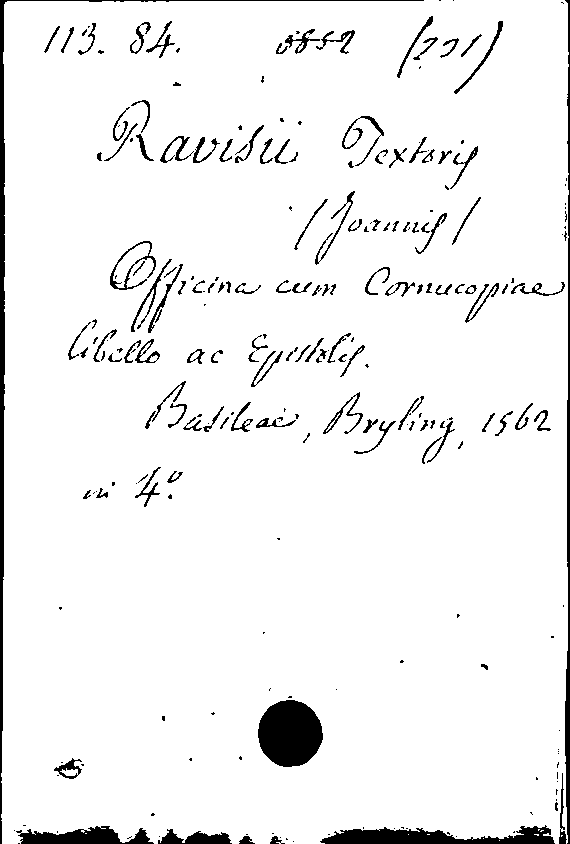 113. 84. 5852 (231)
Ravisii Textoris
/Joannis/
Officina cum Cornucopiae
libello ac Epistolis.
Basileae, Bryling, 1562
in 4º.